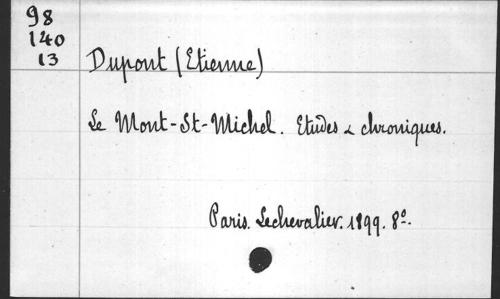 98
140
13
Dupont (Etienne)
Le Mont-St-Michel. Etudes & chroniques.
Paris. Lechevalier. 1899. 8º.